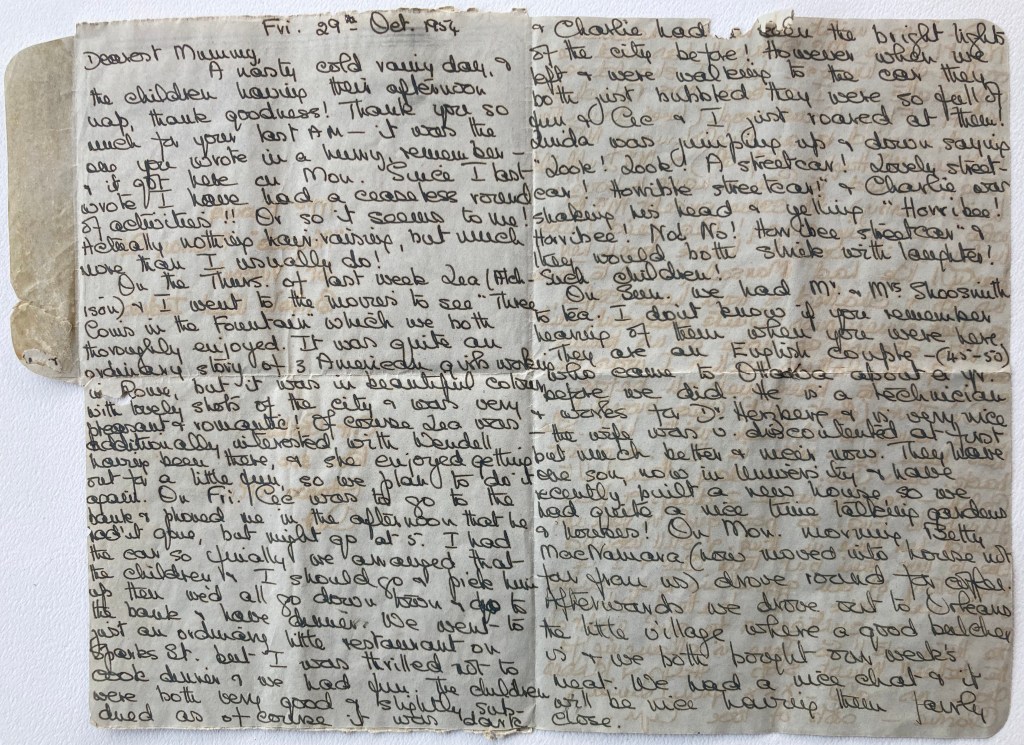 Fri. 29th Oct. 1954
Dearest Mummy,
A nasty cold rainy day, &
the children having their afternoon
nap, thank goodness! Thank you so
much for your last AM — it was the
one you wrote in a hurry, remember —
& it got here on Mon. Since I last
wrote I have had a ceaseless round
of activities!! Or so it seems to me!
Actually nothing hair-raising, but much
more than I usually do!
On the Thurs. of last week Lea (Atch-
ison) & I went to the movies to see "Three
Coins in the Fountain" which we both
thoroughly enjoyed. It was quite an
ordinary story of 3 American girls working
in Rome, but it was in beautiful colour,
with lovely shots of the city & was very
pleasant & romantic! Of course Lea was
additionally interested with Wendell
having been there, & she enjoyed getting
out for a little fun, so we plan to do it
again. On Fri. Cec was to go to the
bank & phoned me in the afternoon that he
hadn't gone, but might go at 5. I had
the car so finally we arranged that
the children & I should go & pick him
up then we'd all go down town & go to
the bank & have dinner. We went to
just an ordinary little restaurant on
Sparks St. but I was thrilled not to
cook dinner & we had fun. The children
were both very good & slightly sub-
dued as of course it was dark
& Charlie had seen the bright lights
of the city before! However when we
left & were walking to the car they
both just bubbled they were so full of
fun & Cec & I just roared at them!
Linda was jumping up & down saying
"Look! Look! A streetcar! Lovely street-
car! Horrible streetcar!" & Charlie was
shaking his head & yelling "Horribee!
Horribee! No! No! Horribee streetcar" &
they would both shriek with laughter!
Such children!
On Sun. we had Mr. & Mrs Shoosmith
to tea. I don't know if you remember
hearing of them when you were here.
They are an English couple — (45-50)
who came to Ottawa about a yr.
before we did. He is a technician
& works for Dr. Herzberg & is very nice
— the wife was v. discontented at first
but much better & nicer now. They have
one son, now in University & have
recently built a new house, so we
had quite a nice time talking gardens
& houses! On Mon. morning Betty
MacNamara (now moved into house not
far from us) drove round for coffee.
Afterwards we drove out to Orleans
the little village where a good butcher
is & we both bought our week's
meat. We had a nice chat & it
will be nice having them fairly
close.